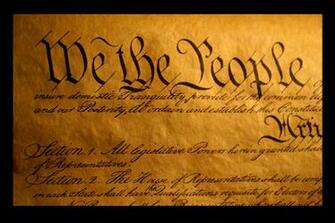 We the People
insure domestic Tranquility, provide for the common
and our Posterity, do ordain and establish this Constitu
Section 1. All legislative Powers herein granted shall
of Representatives.
Section 2. The House of Representatives shall be com
in each State shall have the Qualifications requisite for Electors of